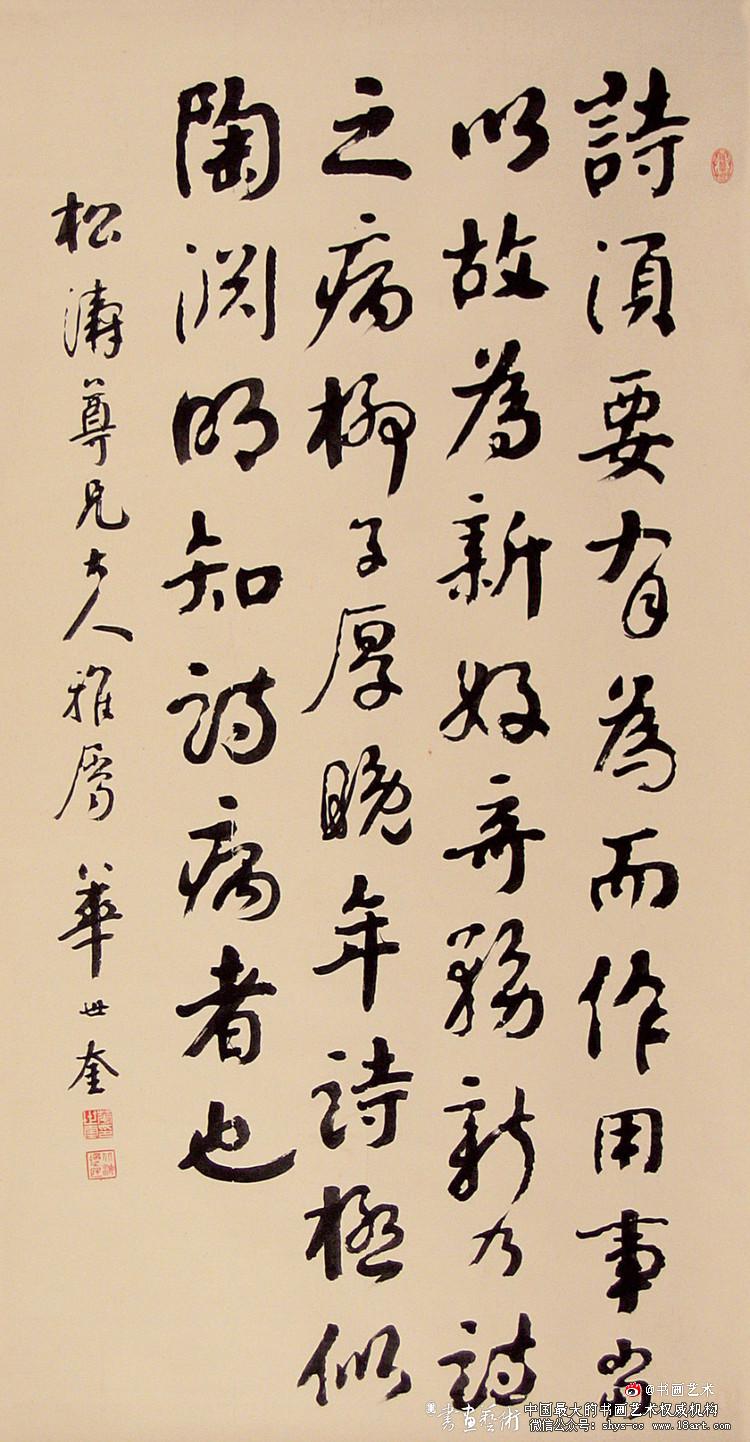 詩須要有為而作用事當
以故為新好奇務新乃詩
之病柳子厚晚年詩極似
陶渊明知詩病者也
松濤尊兄大人雅属 華世奎
@书画艺术
書畫藝術
中国最大的书画艺术权威机构
微信公众号: shys-cc www.18art.com